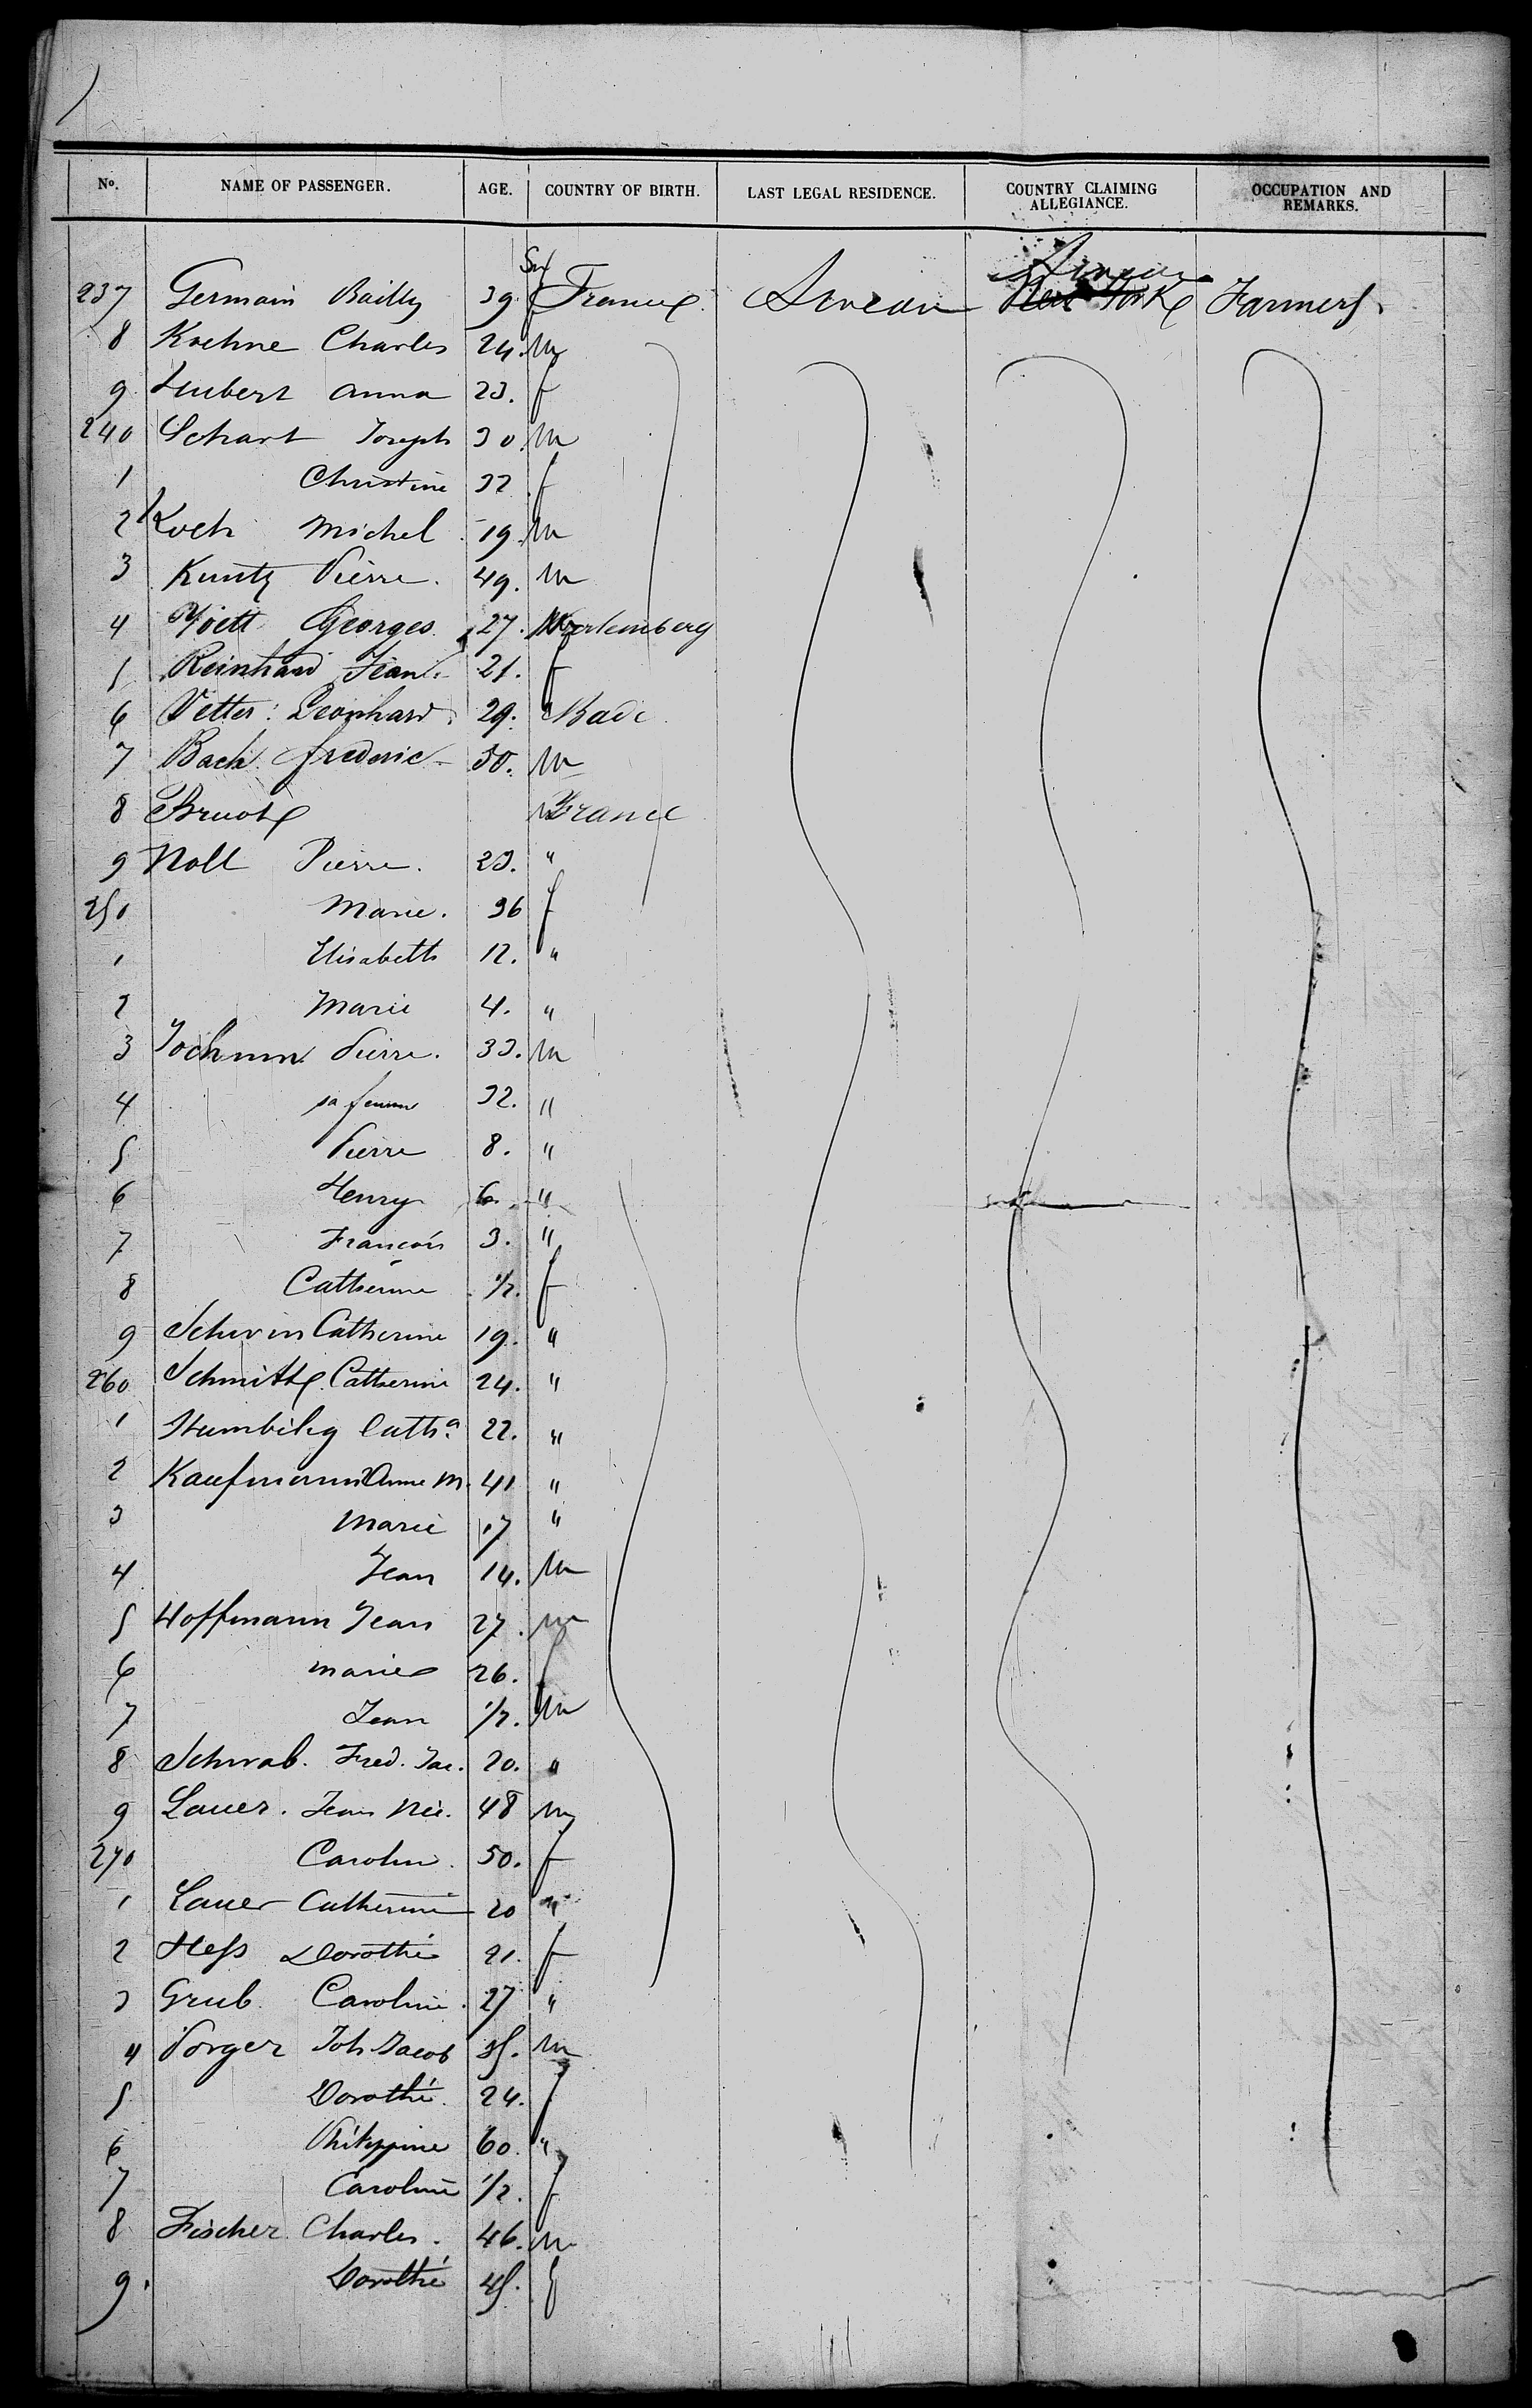 No. NAME OF PASSENGER. AGE. COUNTRY OF BIRTH. LAST LEGAL RESIDENCE. COUNTRY CLAIMING ALLEGIANCE. OCCUPATION AND REMARKS.
237 Germain Bailly 39. f France New York Farmers
8 Koehne Charles 24. m
9 Hubert Anna 23. f
240 Schart Joseph 30. m
1 Christine 32 f
2 Koch Michel 19. m
3 Kuntz Pierre. 49. m
4 Georges 27. Wurtemberg
5 Reinhard Jean 21. f
6 Vetter Leonhard 29. Bade
7 Bach frederic 30. m
8 France
9 Noll Pierre. 23. "
250 Marie. 36 f
1 Elisabeth 12. "
2 Marie 4. "
3 Jochum Pierre. 33. m
4 sa femme 32. "
5 Pierre 8. "
6 Henry 6. "
7 Francois 3. "
8 Catherine 1/2. f
9 Catherine 19. "
260 Schmitt Catherine 24. "
1 Cathª 22. "
2 Kaufmann Anne M. 41 "
3 Marie 17 "
4 Jean 14. m
5 Hoffmann Jean 27. m
6 Marie 26. f
7 Jean 1/2. m
8 Schwab. Fred. Jac. 20. "
9 Lauer. Jean Nic. 48 m
270 Caroline. 50. f
1 Lauer Catherine 20 "
2 Hess Dorothé 21. f
3 Grub. Caroline. 27 "
4 Joh Jacob 35. m
5 Dorothé. 24. f
6 Philippine 60. "
7 Caroline 1/2. f
8 Fischer Charles. 46. m
9. Dorothé 45. f